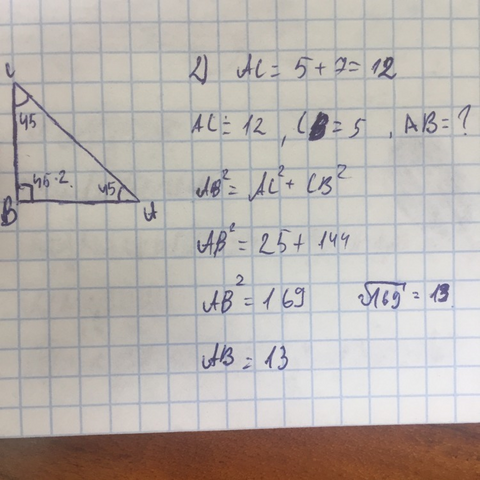 C
45
45·2.
45
B
A
2) AC = 5 + 7 = 12
AC = 12 , CB = 5 , AB = ?
AB² = AC² + CB²
AB² = 25 + 144
AB² = 169 √169 = 13
AB = 13